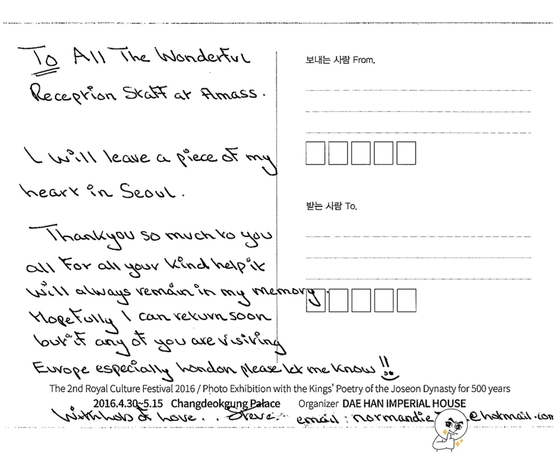 To All The Wonderful
Reception Staff at Amass.
I will leave a piece of my
heart in Seoul.
Thankyou so much to you
all for all your kind help it
will always remain in my memory.
Hopefully I can return soon
but if any of you are visiting
Europe especially London please let me know!!
보내는 사람 From.
받는 사람 To.
The 2nd Royal Culture Festival 2016 / Photo Exhibition with the Kings' Poetry of the Joseon Dynasty for 500 years
2016.4.30~5.15 Changdeokgung Palace Organizer DAE HAN IMPERIAL HOUSE
With lots of love.. Steve.
email: normandie @hotmail.com